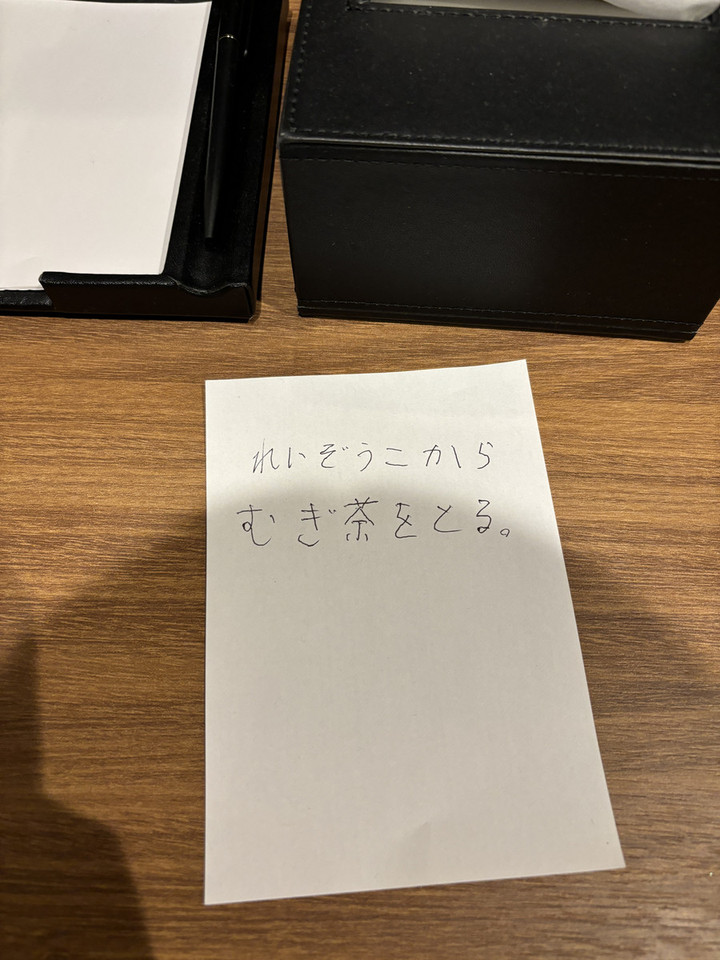 れいぞうこから
むぎ茶をとる。